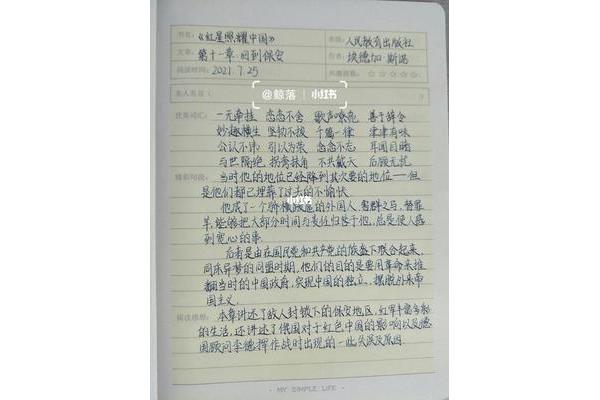 书名：《红星照耀中国》 出版：人民教育出版社
文章：第十一章 回到保安 作者：埃德加·斯诺
阅读时间：2021.7.25 兴趣指数：☆☆☆☆☆
@鲸落 小红书
优美词汇：一无牵挂 恋恋不舍 歌声嘹亮 善于辞令
妙趣横生 坚韧不拔 千篇一律 津津有味
公认不讳 引以为荣 念念不忘 耳闻目睹
与世隔绝 拐弯抹角 不共戴天 后顾无忧
精彩句段：当时他的地位已经降到其次要的地位——但
是他们都已埋葬了过去的不愉快.
小红书
他成了一个骄横跋扈的外国人、害群之马、替罪
羊,能够把大部分时间与责任归咎于他,总是使人感
到宽心的事.
后者是由在国民党和共产党的旗帜下联合起来,
同床异梦的同盟时期,他们的目的是要用革命来推
翻当时的中国政府,实现中国的独立,摆脱外来帝
国主义.
阅读感想：本章讲述了敌人封锁下的保安地区,红军丰富多彩
的生活,还讲述了俄国对于红色中国的影响以及德
国顾问李德指挥作战时出现的一些失误及原因.
- MY SIMPLE LIFE -